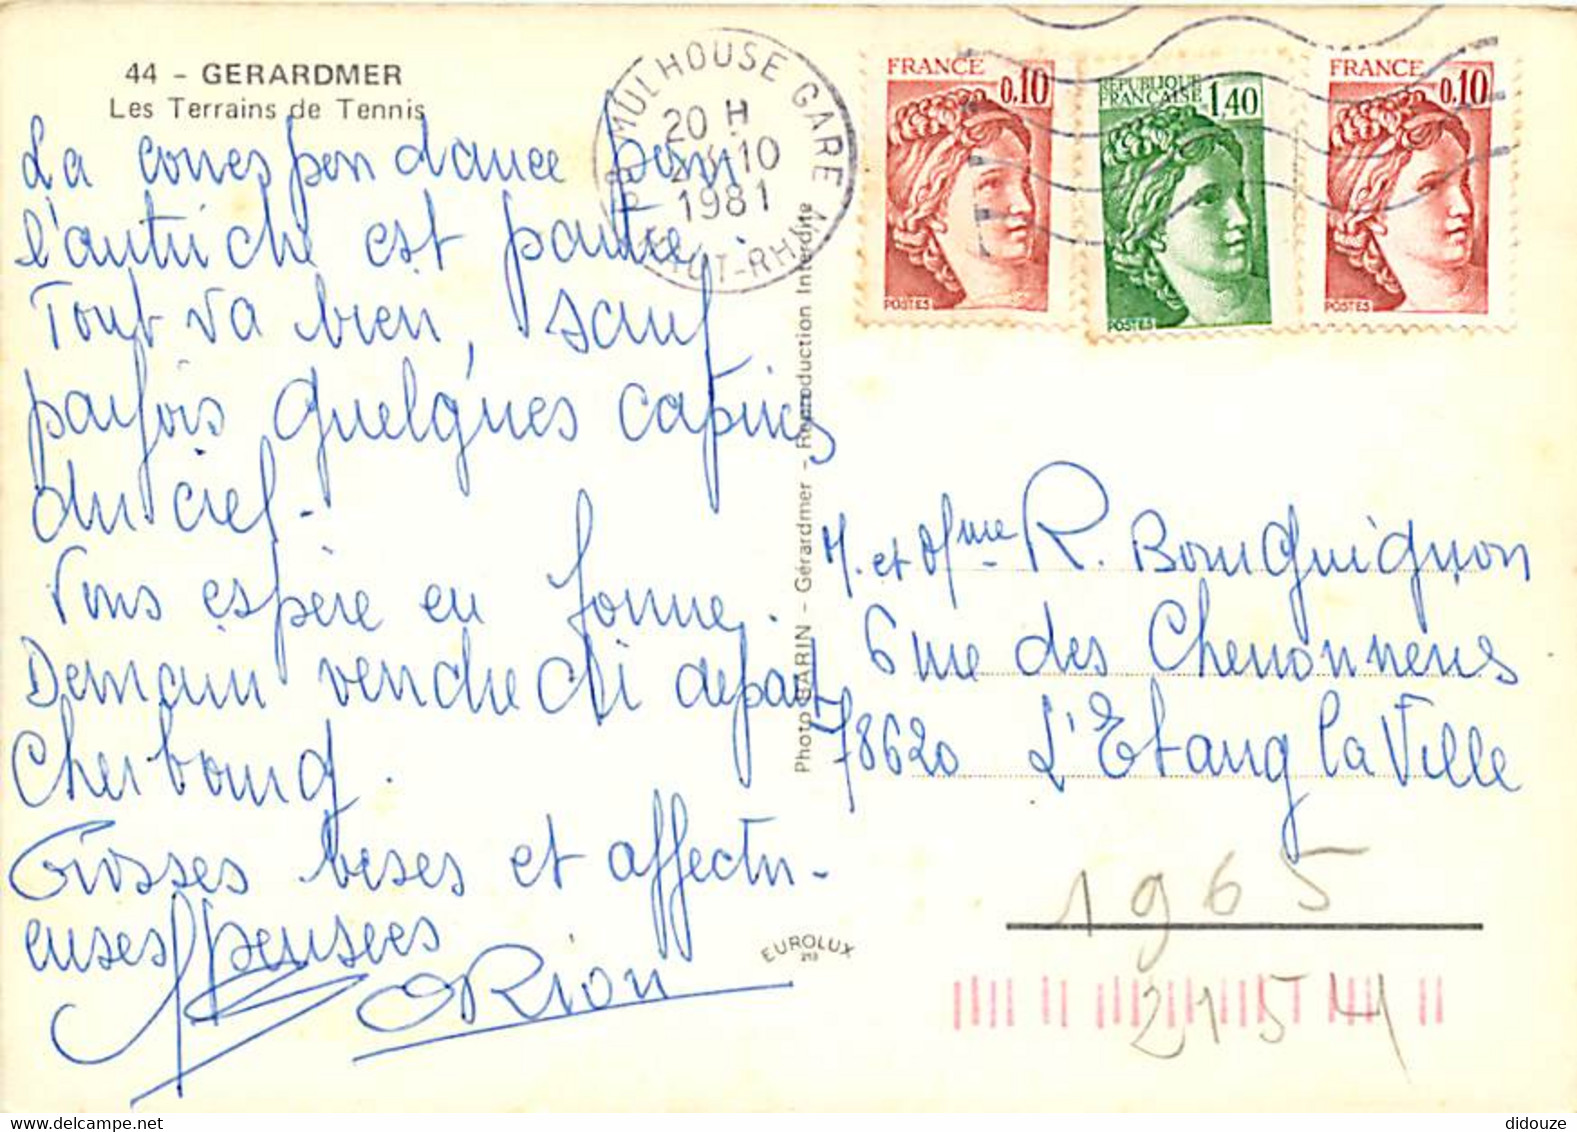 44 - GERARDMER
Les Terrains de Tennis
La correspondance pour
l'autriche est partie.
Tout va bien, sauf
parfois quelques caprices
du ciel.
Vous espère en forme.
Demain vendredi depart
Cherbourg.
Grosses bises et affectu-
euses pensées
ORion
MULHOUSE GARE
20 H
10
1981
HAUT-RHIN
FRANCE 0,10
POSTES
REPUBLIQUE
FRANÇAISE 1,40
POSTES
FRANCE 0,10
POSTES
Photo SARIN - Gérardmer - Reproduction Interdite
EUROLUX
M. et Mme R. Bourguignon
6 rue des Chenonnens
78620 L'Etang la Ville
1965
2154
didouze